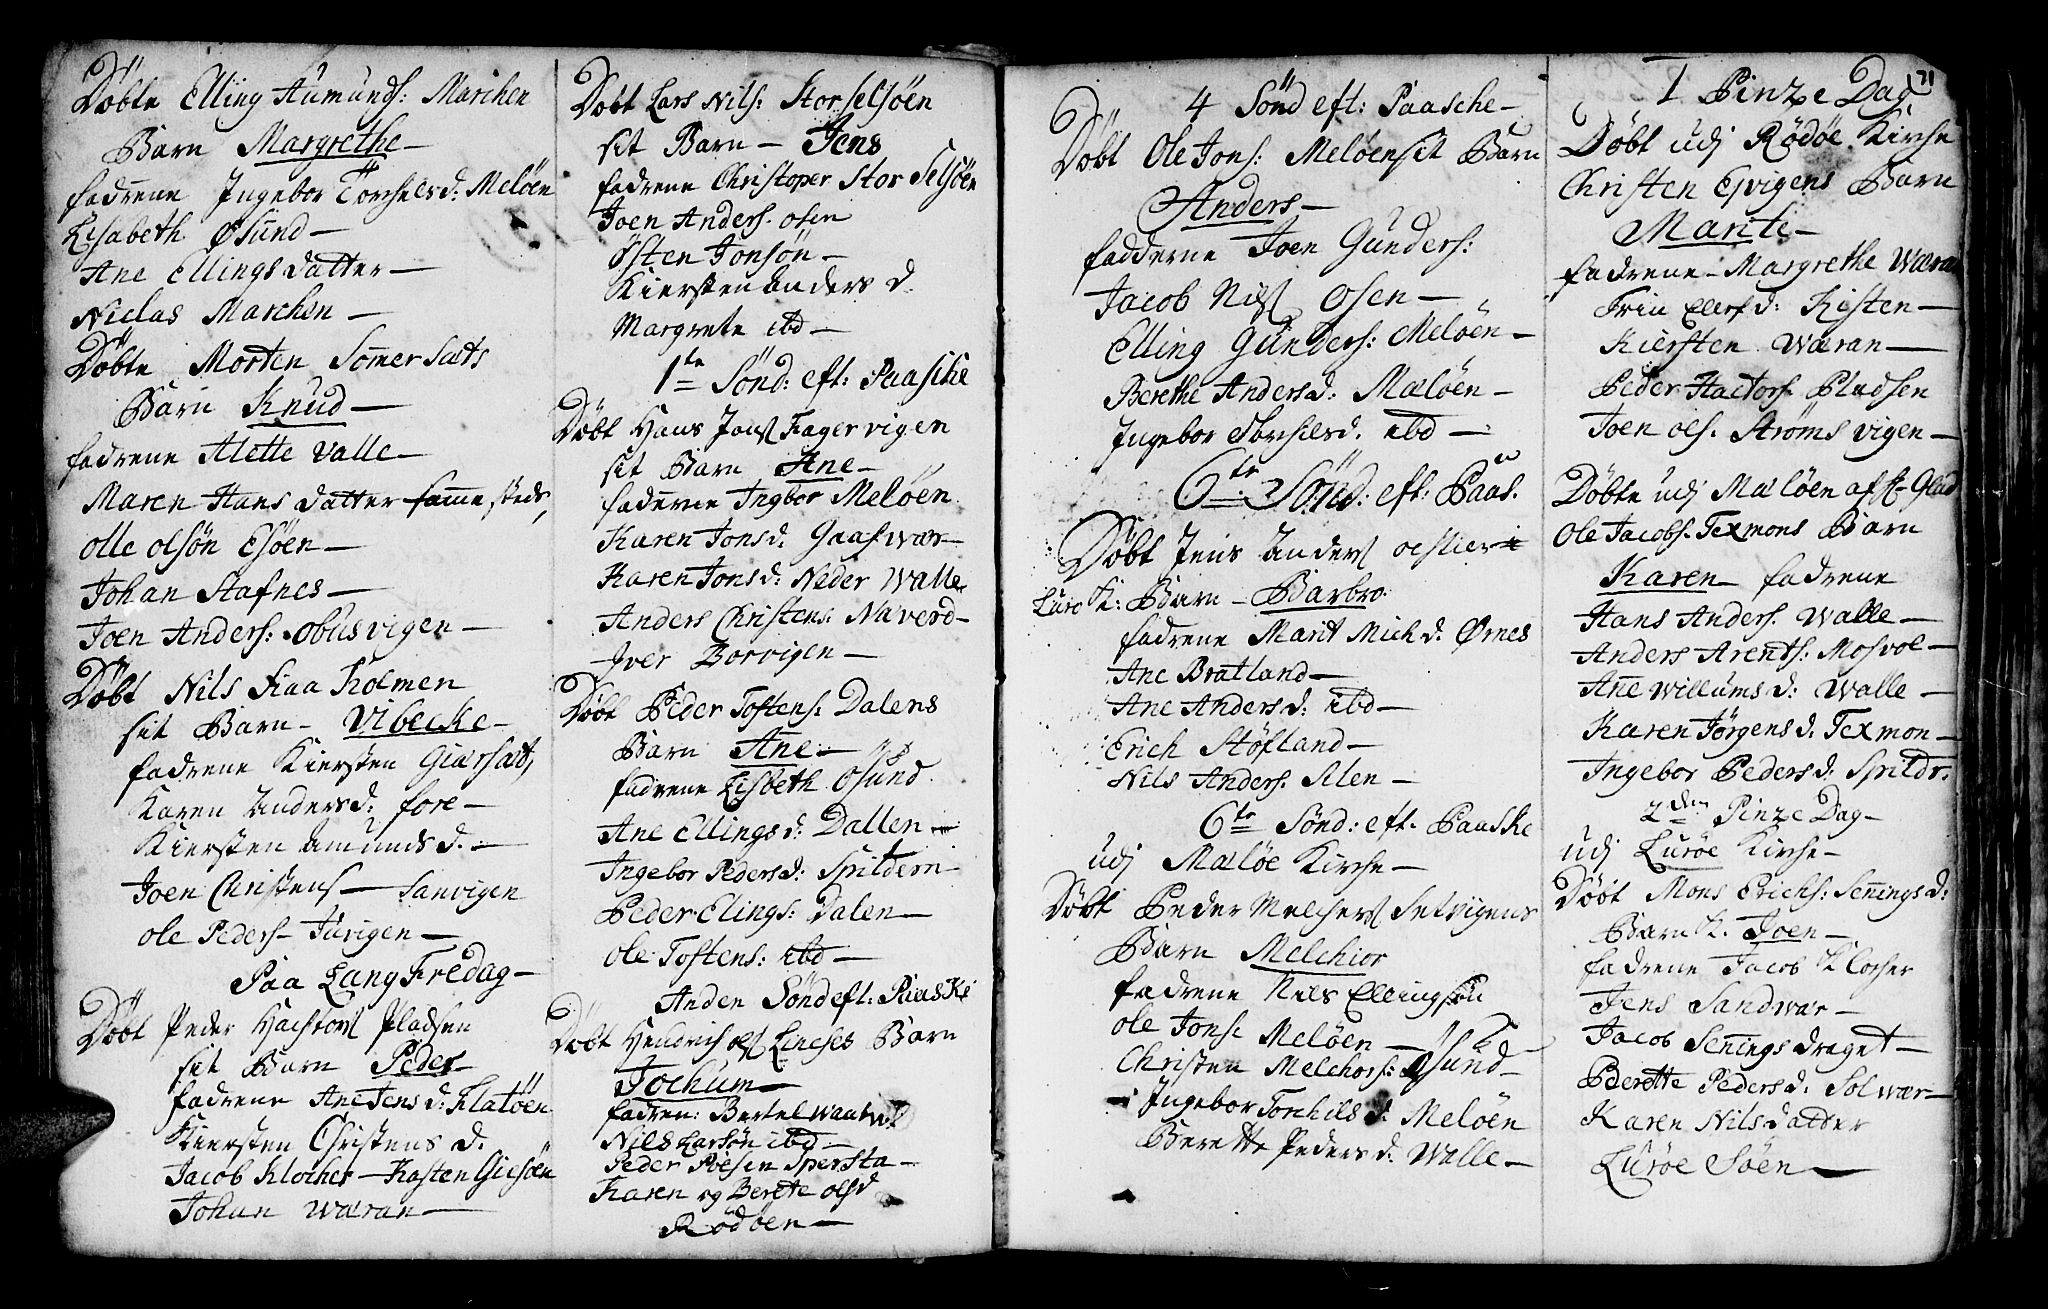 Döbte Elling Aumunds: Marchen
Barn Margrethe —
fadrene Ingebor Torchelsd: Meløen
Lisabeth Øsund —
Ane Ellings datter —
Niclas Marchen —
Döbte Morten Somersæts
Barn Knud —
fadrene Alette Valle —
Maren Hans datter samme steds,
olle olsön Esöen —
Johan Stafnes —
Joen Anders: obusvigen —
Döbt Nils Flaa Kolmen
sit Barn — Vibecke —
fadrene Kiersten Giersæt,
Karen Andersd: fore —
Kiersten Amunds d. —
Joen Christens — Sanvigen
ole Peders — Jürigen —
Paa LangFredag —
Döbt Peder Hachtors Pladsen
sit Barn Peder —
fadrene AneJens d: Flatöen
Kiersten Christens d.
Jacob Klocher — Karsten Giesöen
Johan Waran —
Döbt Lars Nils: Storselsöen
sit Barn — Jens
fadrene Christoper Stor Selsöen
Joen Anders. osen
Østen Jonsön —
Kiersten Anders d.
Margrete ibd —
1te Sönd: eft: Paasche
Döbt Hans Jons Fagervigen
sit Barn Ane —
fadrene Ingbor Meløen
Karen Jonsd: Gaaswær —
Karen Jonsd: Neder Walle
Anders Christens: Naverd —
Iver Borvigen —
Döbt Peder Tostens: Dalens
Barn Ane —
fadrene Lisbeth Øsund
Ane Ellings d: Dallen —
Ingebor Pedersd: Spildern —
Peder Elings: Dalen —
Ole Tostens: ibd —
Anden Sönd eft: Paaske
Döbt Hendrich ols Lenches Barn
Jochum —
fadren: Bertel
Nils Larsön ibd —
Peder Poesen Spersta —
Karen og Berete olsd
Rödöen —
4 Sönd eft: Paasche —
Döbt Ole Jons: Meløen sit Barn
Anders —
fadderne Joen Gunders:
Jacob Nils Osen —
Elling Gunders: Meløen —
Berethe Andersd: Mæløen —
Ingebor Torchelsd. ibd —
6te Sönd: eft: Paas.
Döbt Jens Anders
Luro K: Barn — Barbro
fadrene Marit Mich d. Ørnes
Ane Bratland —
Ane Andersd: ibd —
Erich Støfland —
Nils Anders. Alen —
6te Sönd: eft. Paaske
udj Mæløe Kirche —
Döbt Peder Melchers Selvigens
Barn Melchior
fadrene Niels Ellingsön
ole Jons: Meløen —
Christen Melchors: Øsund —
Ingebor Torchils d. Meløen
Berette Peders d: Walle —
171
1 Pinze Dag
Döbt udj Rödöe Kirche
Christen Esvigens Barn
Marite —
fadrene — Margrethe Wæran
Trin Elers d: Kisten —
Kiersten Wæran —
Peder Hactors. Pladsen
Joen ols. Strömsvigen —
Döbte udj Mæløen af Hr Glad
Ole Jacobs. Texmons Barn
Karen fadrene
Hans Anders. Walle —
Anders Arents: Mosvol —
Ane Willums d: Walle —
Karen Jörgens d. Texmon —
Ingebor Peders d: Spildr.
2den Pinze Dag —
udj Luröe Kirche —
Döbt Mons Erichs: Sennings d:
Barn K. Joen —
fadrene Jacob Klocher
Jens Sandwær —
Jacob Sennings draget —
Berette Peders d: Solwær —
Karen Nils datter
Luröe Söen —